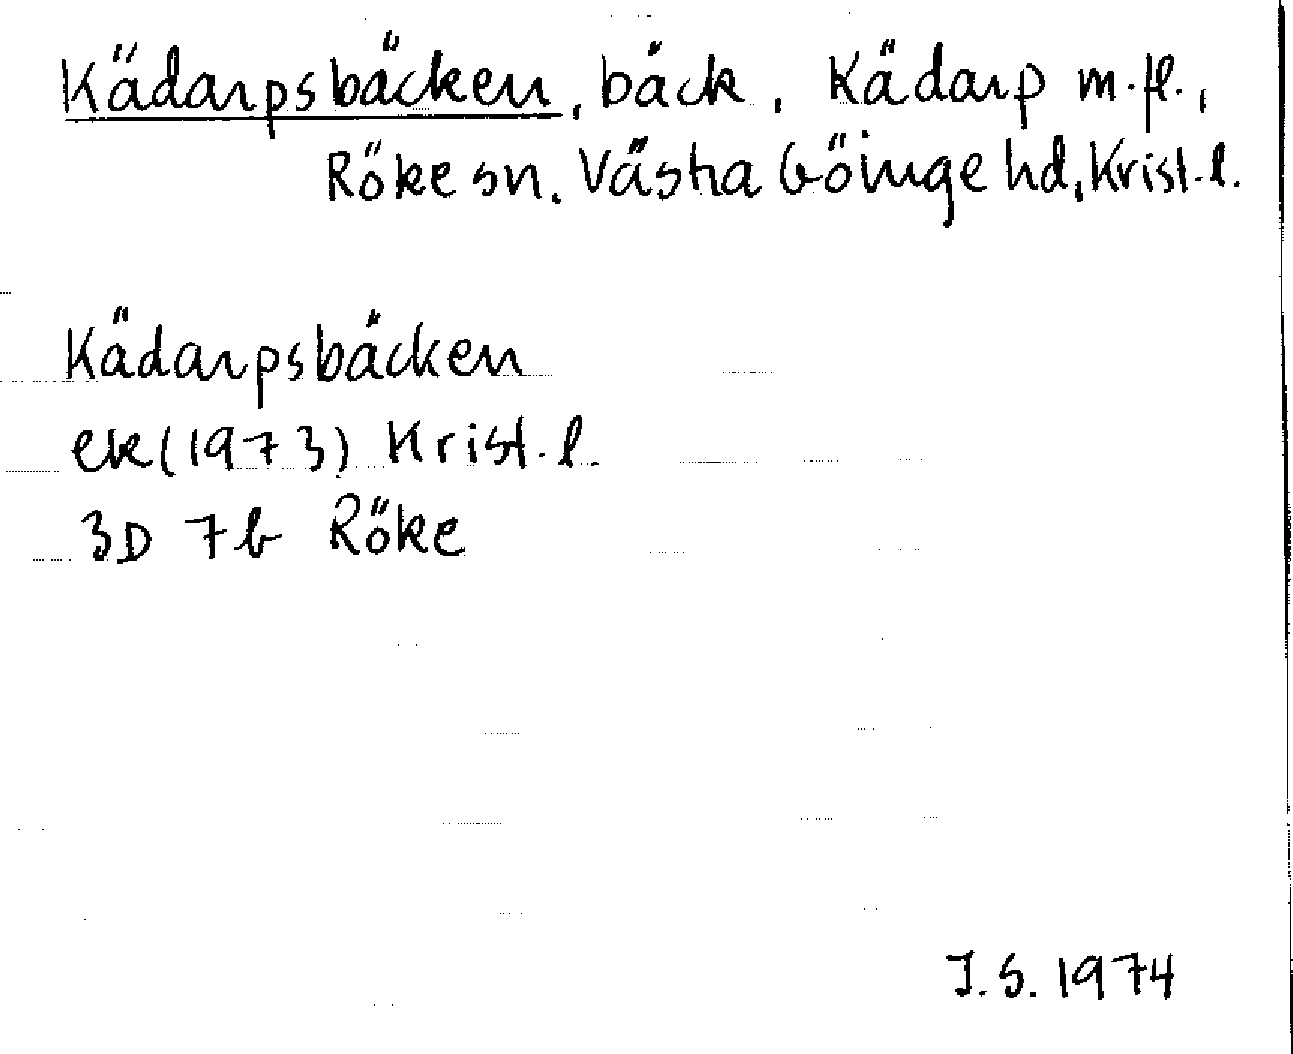 Kädarpsbäcken, bäck, Kädarp m.fl.,
Röke sn. Västra Göinge hd, Krist.l.
Kädarpsbäcken
ek(1973) Krist.l.
3D 7b Röke
I.S. 1974